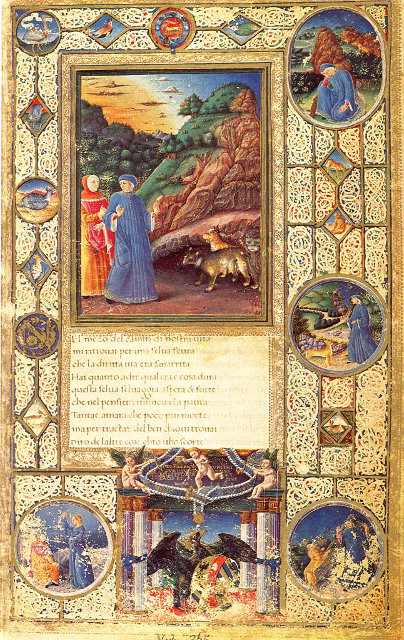 El mezo del camin di nostra uita
mi ritrouai per una selua scura
che la diritta uia era smarrita
Hai quanto adir qual era e cosa dura
questa selua seluaggia aspera & forte
che nel pensier rinuoua la paura
Tantae amara che poco piu morte
ma per tractar del ben chio ui trouai
diro de laltre cose chio uho scorte